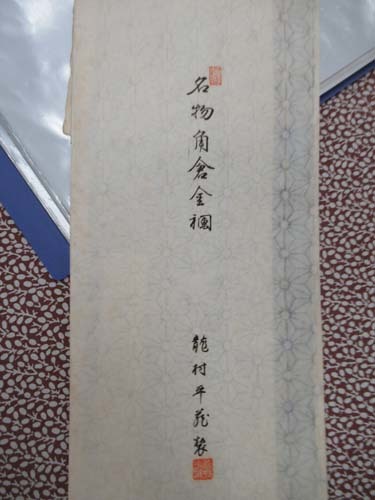 名物角倉金襴
龍村平蔵製